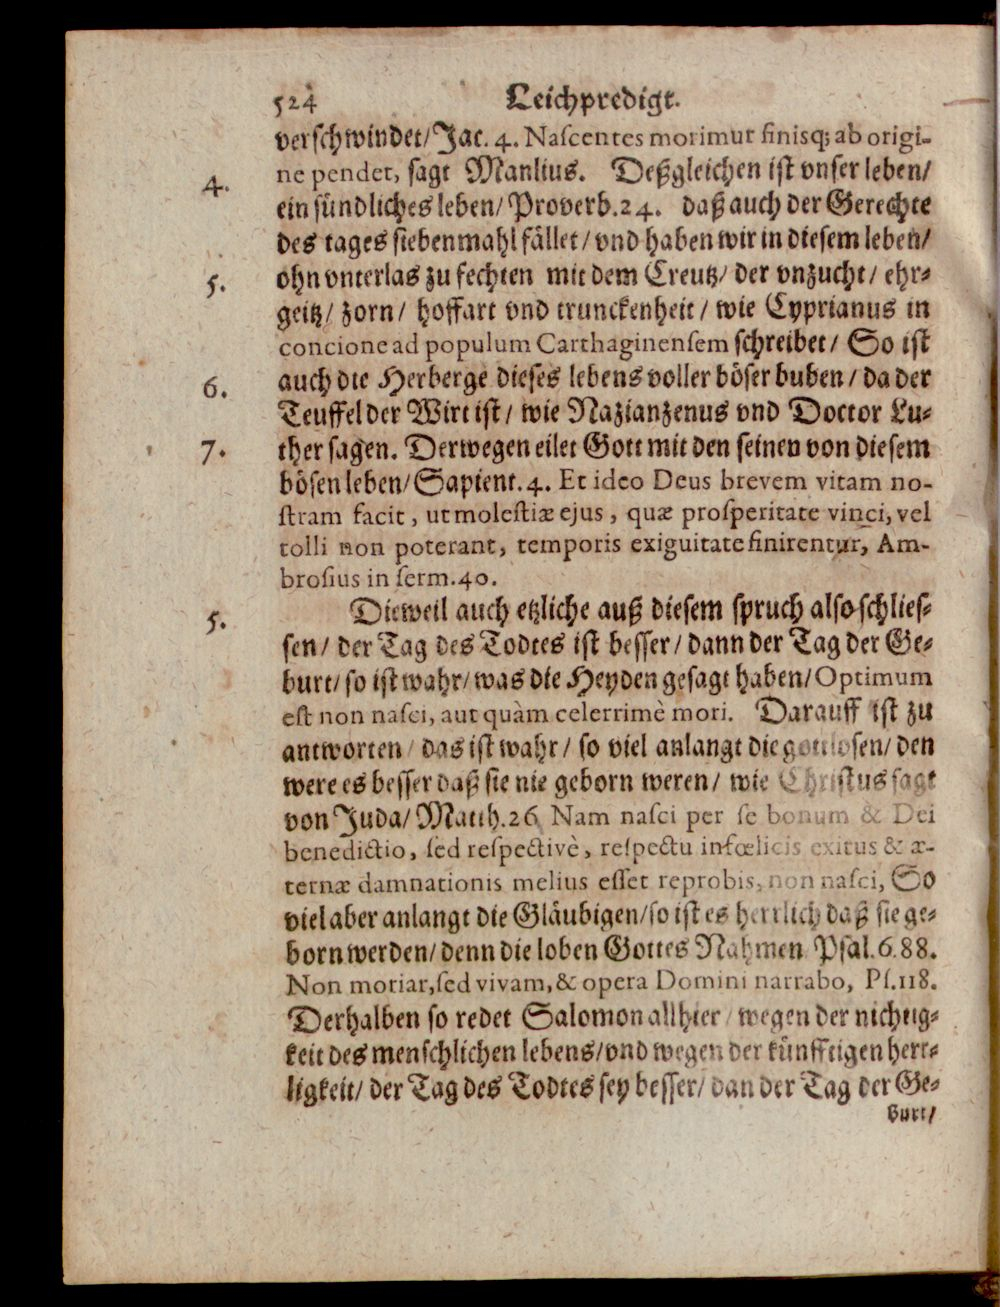 524 Leichpredigt.
verschwindet/ Jac. 4. Nascentes morimur finisq; ab origi-
4. ne pendet, sagt Manlius. Deßgleichen ist vnser leben/
ein sündliches leben/ Proverb. 24. daß auch der Gerechte
des tages siebenmahl fället/ vnd haben wir in diesem leben/
5. ohn vnterlas zu fechten mit dem Creutz/ der vnzucht/ ehr-
geitz/ zorn/ hoffart vnd trunckenheit/ wie Cyprianus in
concione ad populum Carthaginensem schreibet/ So ist
6. auch die Herberge dieses lebens voller böser buben/ da der
Teuffel der Wirt ist/ wie Nazianzenus vnd Doctor Lu-
7. ther sagen. Derwegen eilet Gott mit den seinen von diesem
bösen leben/ Sapient. 4. Et ideo Deus brevem vitam no-
stram facit, ut molestiæ ejus, quæ prosperitate vinci, vel
tolli non poterant, temporis exiguitate finirentur, Am-
brosius in serm. 40.
5. Dieweil auch etzliche auß diesem spruch also schlies-
sen/ der Tag des Todtes ist besser/ dann der Tag der Ge-
burt/ so ist wahr/ was die Heyden gesagt haben/ Optimum
est non nasci, aut quàm celerrimè mori. Darauff ist zu
antworten/ das ist wahr/ so viel anlangt die gottlosen/ den
were es besser daß sie nie geborn weren/ wie Christus sagt
von Juda/ Matth. 26 Nam nasci per se bonum & Dei
benedictio, sed respectivè, respectu infœlicis exitus & æ-
ternæ damnationis melius esset reprobis, non nasci, So
viel aber anlangt die Gläubigen/ so ist es herrlich daß sie ge-
born werden/ denn die loben Gottes Nahmen Psal. 6. 88.
Non moriar, sed vivam, & opera Domini narrabo, Ps. 118.
Derhalben so redet Salomon allhier/ wegen der nichtig-
keit des menschlichen lebens/ vnd wegen der künfftigen herr-
ligkeit/ der Tag des Todtes sey besser/ dan der Tag der Ge-
burt/